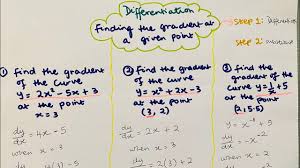 Differentiation
Finding the gradient at
a given point
Step 1: Differentiation
Step 2:
① Find the gradient
of the curve
y = 2x² - 5x + 3
at the point
x = 3
dy/dx = 4x - 5
when x = 3
② find the gradient
of the curve
y = x² + 2x - 3
at the point
(3, 2)
dy/dx = 2x + 2
when x = 3
= 2(3) + 2
③ find the gradient of
the curve y = 1/x + 5
at the point
(2, 5.5)
y = x⁻¹ + 5
dy/dx = -x⁻²
when x = 2